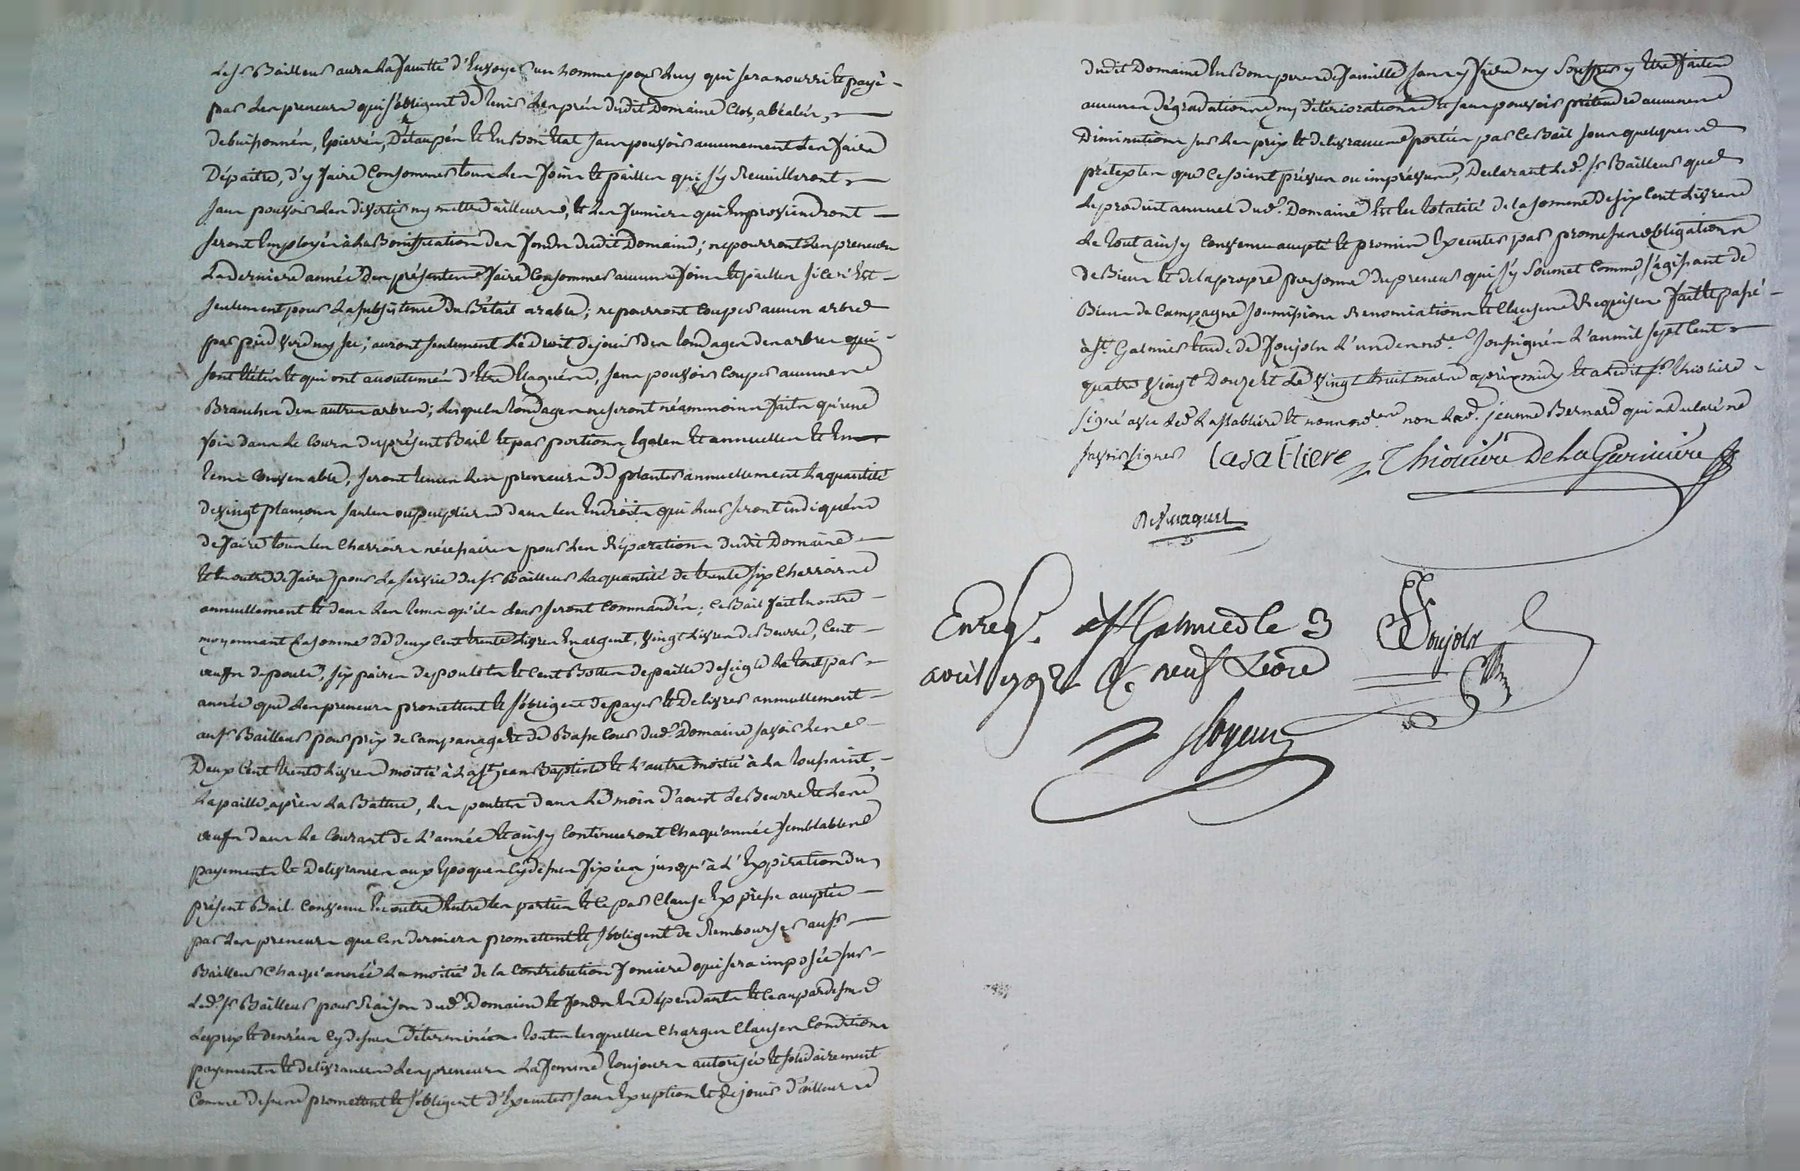 le Sr Bailleur aura la faculté d'Envoyer un homme pour luy qui sera nourri et payé
par les preneurs qui s'obligent de tenir les prés dudit Domaine Clos, abealés,
debuissonnés, Epierrés, Détaupés et En Bon Etat sans pouvoir aucunement les faire
Dépaitre, d'y faire Consommer tous les foins et pailles qui s'y Recuilleront
sans pouvoir les divertir ny mettre ailleurs, et les fumiers qui En proviendront
seront Employés à la Bonification des fonds dudit Domaine; ne pourront les preneurs
La derniere année des présentes faire Consommer aucuns foins et pailles si ce n'Est
seulement pour la subsistence du Bétail arable; ne pourront couper aucun arbre
par pied verd ny sec; auront seulement le Droit de jouir des tondages des arbres qui
sont Etétés et qui ont accoutumés d'Etre Elagués, sans pouvoir couper aucunes
Branches des autres arbres; lesquels tondages ne seront néammoins faits qu'une
fois dans le Cours du présent Bail et par portions Egales et annuelles et En
tems Convenable, seront tenus les preneurs de planter annuellement la quantité
de vingt plançons saules ou peupliers dans les Endroits qui leur seront indiqués
de faire tous les charrois nécessaires pour les Réparations dudit Domaine
et En outre de faire pour le service du Sr Bailleur la quantité de trente six Charrois
annuellement et dans les tems qu'ils leur seront Commandés; ce Bail fait En outre
moyennant la somme de deux Cent trente Livres En argent, vingt Livres de Beurre, Cent
œufs de poule, six paires de poulets et Cent Bottes de paille de seigle le tout par
année que les preneurs promettent et s'obligent de payer et Delivrer annuellement
au Sr Bailleur pour prix de Campanage et de Basse Cour dud. Domaine savoir les
Deux Cent trente Livres moitié à la St jean Baptiste et l'autre moitié à la toussaint,
La paille après la Batture, les poulets dans le mois d'aoust le Beurre et les
œufs dans le Courant de l'année et ainsy Continueront Chaqu'année semblables
payements et Delivrances aux Epoques cy dessus fixées jusqu'à l'Expiration du
présent Bail. Convenu En outre Entre les parties et ce par Clause Expresse acceptée
par les preneurs que ces derniers promettent et s'obligent de Rembourser au Sr
Bailleur Chaqu'année la moitié de la Contribution fonciere qui sera imposée sur
Led. Sr Bailleur pour Raison dud. Domaine et fonds En dépendants et ce au pardessus
Le prix et denrées cy dessus déterminées toutes lesquelles Charges Clauses Conditions
payements et delivrances les preneurs la femme toujours autorisée et solidairement
Comme dessus promettent et s'obligent d'Executer sans Exception et de jouir d'ailleurs
dudit Domaine En Bon pere de famille sans y faire ny souffrir y Etre faites
aucunes dégradations ny détériorations et sans pouvoir prétendre aucunes
Diminutions sur les prix et delivrances portées par ce Bail sous quelques
prétextes que ce soient prévus ou imprévus, Declarant led. Sr Bailleur que
le produit annuel dud. Domaine Est En totalité de la somme de six Cent Livres
Le tout ainsy Convenu accepté et promis Executer par promesses obligations
de Biens et de la propre personne du preneur qui s'y soumet Comme s'agissant de
Biens de Campagne soumissions Renonciations et Clauses Requises fait et passé
à St. Galmier Etude de foujols L'un des nores soussignés L'an mil sept Cent
quatre vingt Douze et Le vingt huit mars après midy et a ledit Sr Thioliere
signé avec led. Lassabliere et nous nores non lad. jeanne Bernard qui a declaré ne
savoir signer LasaBliere Thioliere De La Guriniere
Enreg. à St Galmier le 3
avril 1792 R. neuf Livre
Foujols